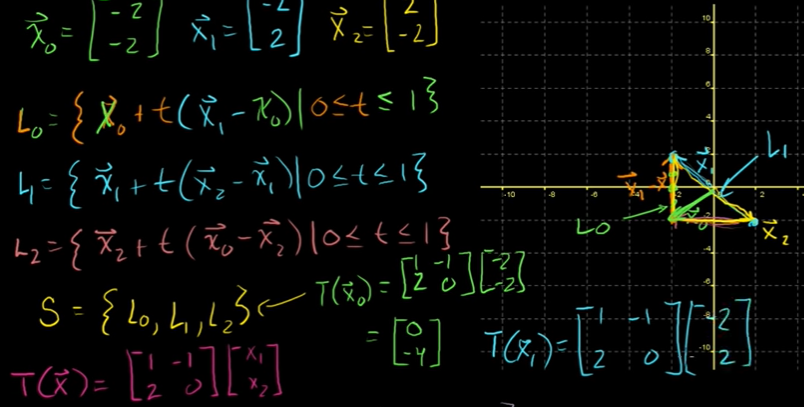 x⃗₀ = [-2 -2] x⃗₁ = [-2 2] x⃗₂ = [2 -2]
L₀ = { x⃗₀ + t(x⃗₁ - x₀) | 0 ≤ t ≤ 1 }
L₁ = { x⃗₁ + t(x⃗₂ - x⃗₁) | 0 ≤ t ≤ 1 }
L₂ = { x⃗₂ + t(x⃗₀ - x⃗₂) | 0 ≤ t ≤ 1 }
S = { L₀, L₁, L₂ }
T(x⃗₀) = [1 -1 2 0] [-2 -2]
= [0 -4]
T(x⃗) = [1 -1 2 0] [x₁ x₂]
T(x⃗₁) = [1 -1 2 0] [-2 2]
10
8
6
4
-10 -8 -6 -4 2
-4
-6
-8
-10
L₁
L0
x⃗₂